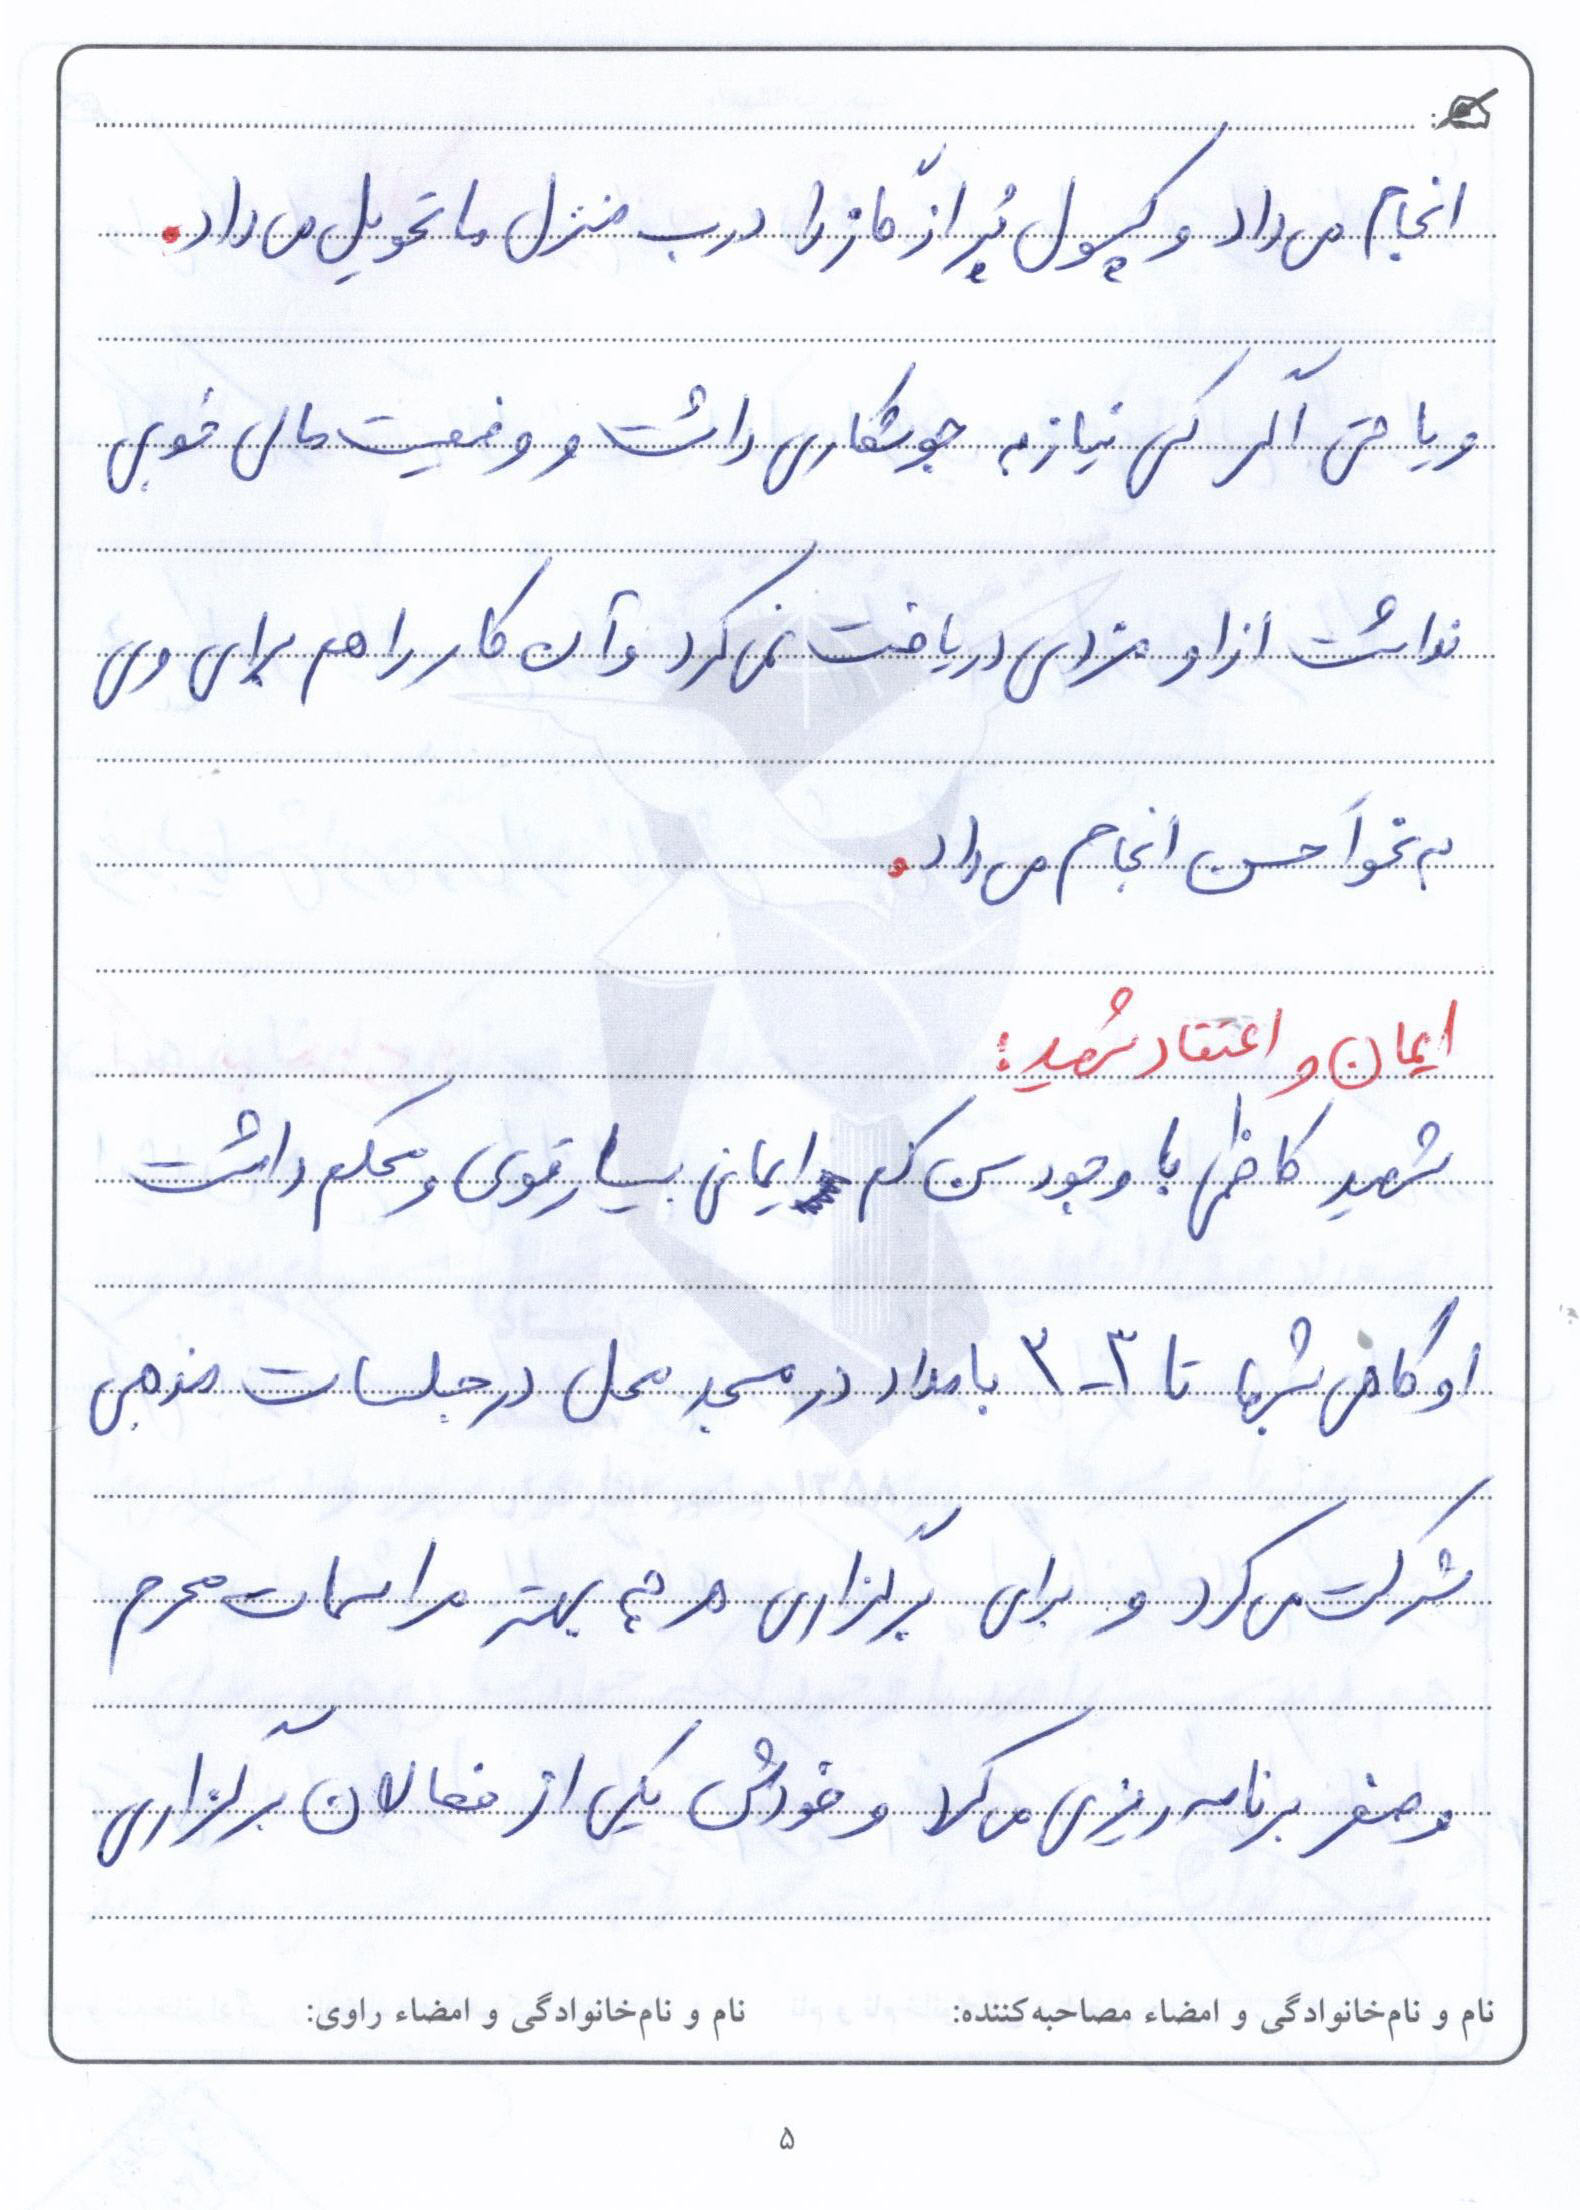 انجام می‌داد و کپسول پُر از گاز را درب منزل ما تحویل می‌داد.
و یا حتی اگر کسی نیاز به جوشکاری داشت و وضعیت مالی خوبی
نداشت از او مزدی دریافت نمی‌کرد و آن کار را هم برای وی
به نحو اَحسن انجام می‌داد.
ایمان و اعتقاد شهید:
شهید کاظمی با وجود سن کم ایمانی بسیار قوی و محکم داشت
او گاهی شبها تا ۳-۲ بامداد در مسجد محل در جلسات مذهبی
شرکت می‌کرد و برای برگزاری هر چه بهتر مراسمات محرم
و صفر برنامه‌ریزی می‌کرد و خودش یکی از فعالان برگزاری
نام و نام‌خانوادگی و امضاء مصاحبه‌کننده: نام و نام‌خانوادگی و امضاء راوی:
۵